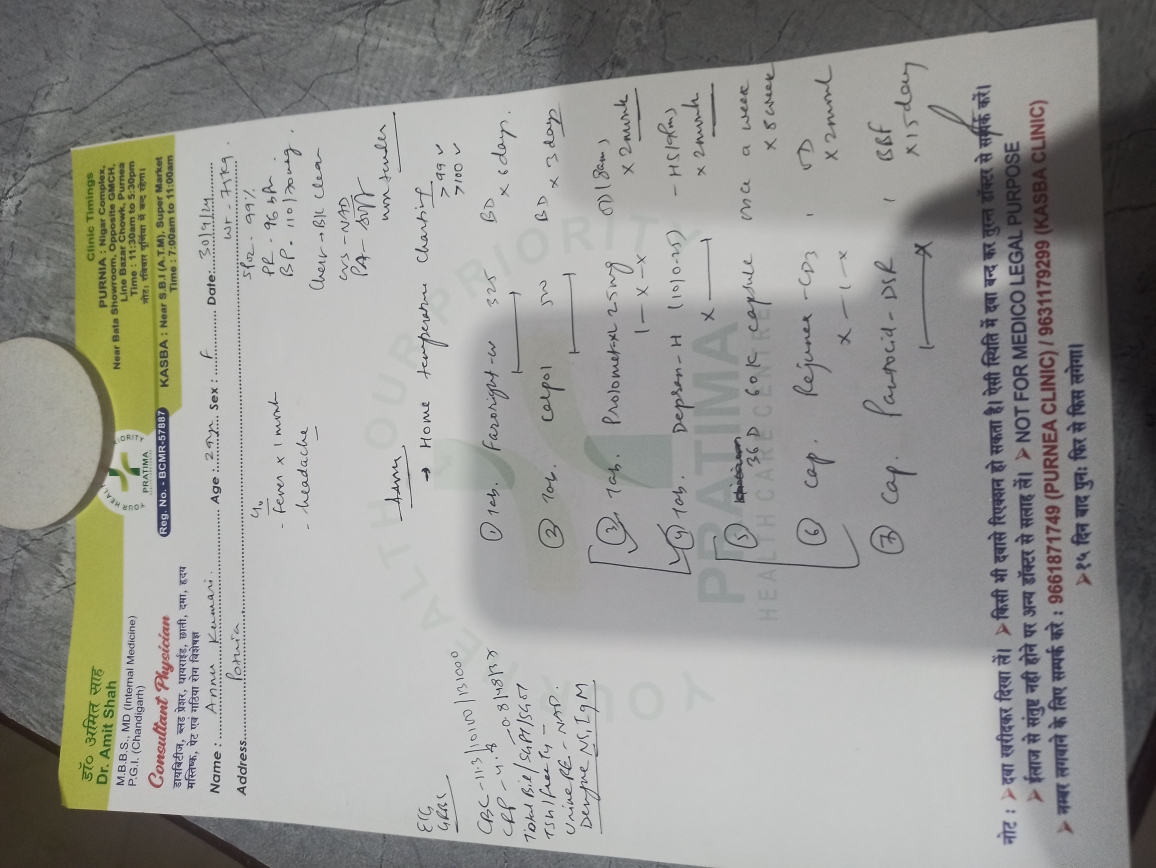 डॉ० अमित साह
Dr. Amit Shah
M.B.B.S., MD (Internal Medicine)
P.G.I. (Chandigarh)
Consultant Physician
डायबिटीज, ब्लड प्रेशर, थायराईड, छाती, दमा, हृदय
मस्तिष्क, पेट एवं गठिया रोग विशेषज्ञ
YOUR HEALTH PRIORITY
PRATIMA
Reg. No. - BCMR-57887
Clinic Timings
PURNIA : Nigar Complex,
Near Bata Showroom, Opposite GMCH,
Line Bazar Chowk, Purnea
Time : 11:30am to 5:30pm
नोट: रविवार पूर्णिया में बन्द रहेगा।
KASBA : Near S.B.I (A.T.M), Super Market
Time : 7:00am to 11:00am
Name : Annu Kumari Age : 29yr Sex : F Date: 30/9/24
Address Purnia wt - 75kg.
c/o
- fever x 1 month
- headache
SPO2 - 99%
PR - 96 bpm
BP - 110/70mmg.
Chest → B/L clear
CVS - NAD
P/A - soft
non tender
Adv
→ Home temperature charting
> 99
> 100
① Tab. Faronight-ER 325 BD x 6 days.
② Tab. Calpol 500 BD x 3 days
③ Tab. Prolomet-XL 25mg OD (8am)
1 - x - x x 2 month
④ Tab. Depsan-H (10/0.25) - HS (9pm)
x 2 month
⑤ D3 60K capsule once a week
x 8 week
⑥ Cap. Rejunex-CD3 1 OD
x - 1 - x x 2 month
⑦ Cap. Pantocid-DSR 1 BBF
x 15 day
ECG
GRBS
CBC - 11.3/10100/131000
CRP - 4.6
Total Bil/SGPT/SGOT - 0.8/48/37
TSH/free T4 -
Urine RE - NAD.
Dengue NS, IgM
YOUR HEALTH OUR PRIORITY
PRATIMA
HEALTHCARE CENTRE
नोट : ➤ दवा खरीदकर दिखा लें। ➤ किसी भी दवासे रिएक्शन हो सकता है। ऐसी स्थिति में दवा बन्द कर तुरन्त डॉक्टर से सम्पर्क करें।
➤ ईलाज से संतुष्ट नहीं होने पर अन्य डॉक्टर से सलाह लें। ➤ NOT FOR MEDICO LEGAL PURPOSE
➤ नम्बर लगवाने के लिए सम्पर्क करे : 9661871749 (PURNEA CLINIC) / 9631179299 (KASBA CLINIC)
➤ १५ दिन बाद पुनः फिर से फिस लगेगा।